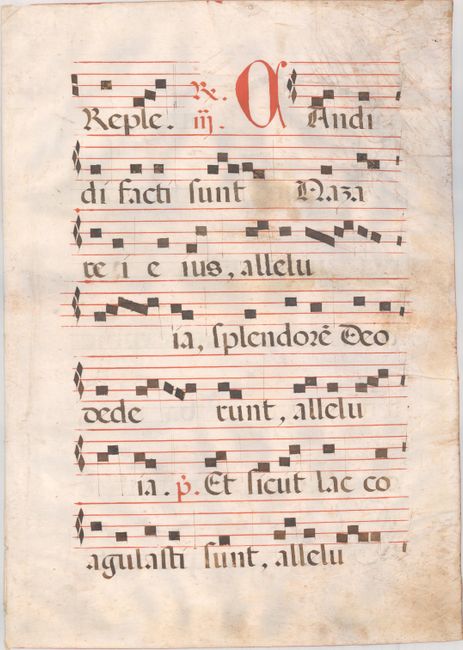 Reple. ℞. iij. C Andi
di facti sunt Naza
re i e ius, allelu
ia, splendorẽ Deo
dede runt, allelu
ia. p̃. Et sicut lac co
agulasti sunt, allelu